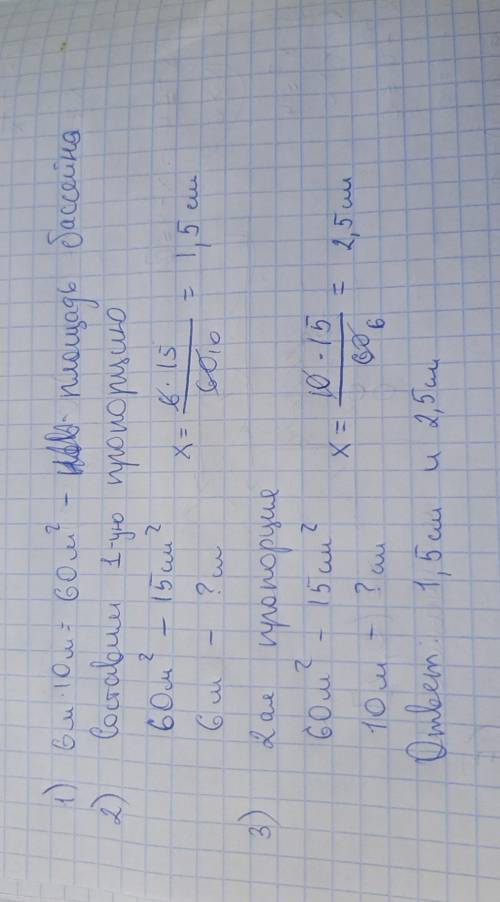 1) 6м·10м= 60м² - площадь бассейна
2) Составим 1-ую пропорцию
60м² – 15см²
6м – ?см
x = 6·15 / 60 10 = 1,5 см
3) 2ая пропорция
60м² – 15см²
10м – ?см
x = 10·15 / 60 6 = 2,5см
Ответ: 1,5см и 2,5см